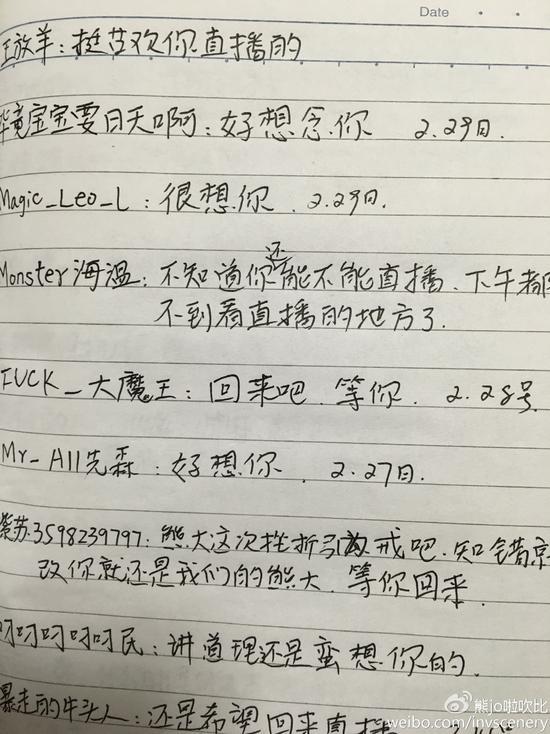 Date
王放羊：挺喜欢你直播的
毕竟宝宝要日天啊：好想念你 2.29日.
Magic_Leo_L：很想你. 2.29日.
Monster海温：不知道你还能不能直播. 下午都
不到看直播的地方了.
FUCK_大魔王：回来吧. 等你. 2.28号
Mr_All先森：好想你. 2.27日.
紫苏.3598239797：熊大这次挫折引以戒吧. 知错
改你就还是我们的熊大. 等你回来.
叼叼叼叼叼民：讲道理还是蛮想你的.
暴走的牛头人：还是希望回来直播
熊jo啦吹比
weibo.com/invscenery